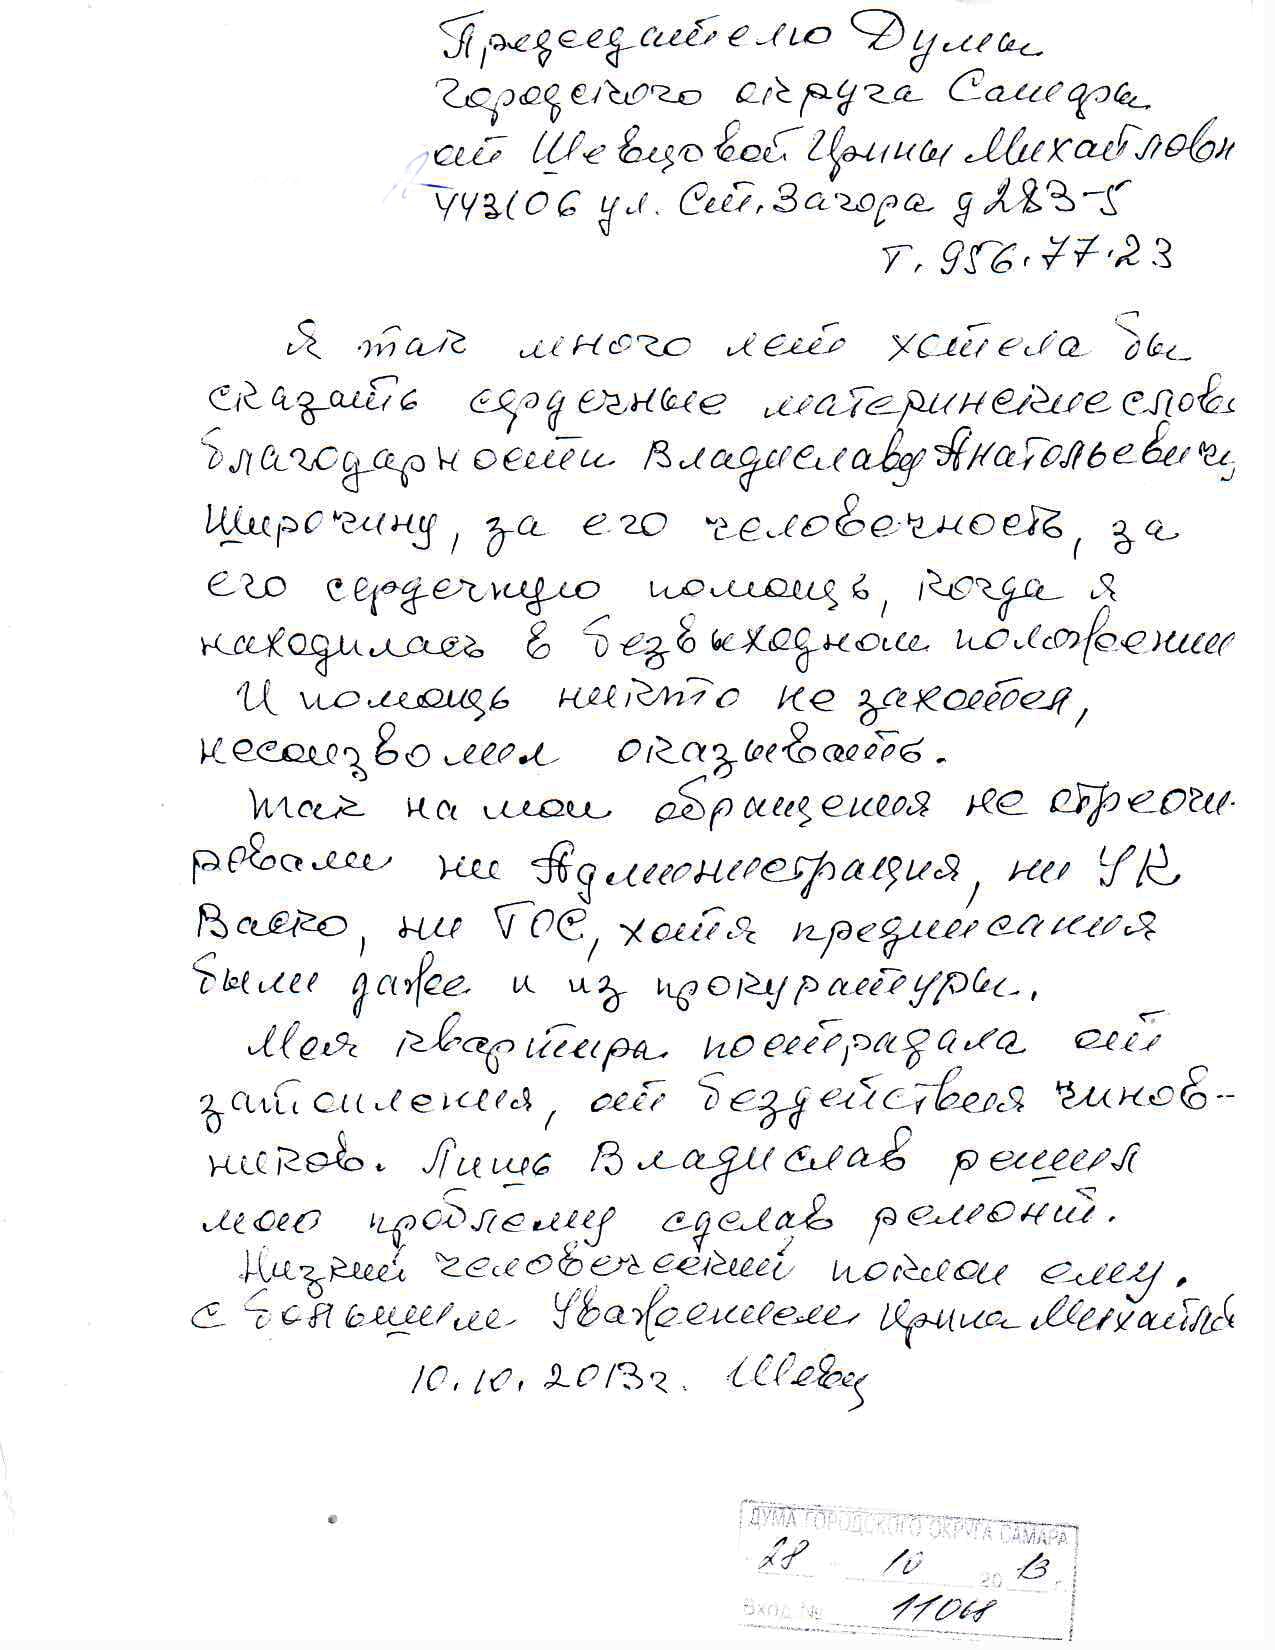 Председателю Думы
городского округа Самары
от Шевцовой Ирины Михайловн
443106 ул. Ст. Загора д 283-5
т. 956.77.23
Я так много лет хотела бы
сказать сердечные материнские слова
благодарности Владиславу Анатольевичу
Широчину, за его человечность, за
его сердечную помощь, когда я
находилась в безвыходном положении
И помощь никто не захотел,
несоизволил оказывать.
Так на мои обращения не отреаги-
ровали ни Администрация, ни УК
Васко, ни ТОС, хотя предписания
были даже и из прокуратуры.
Моя квартира пострадала от
затопления, от бездействия чинов-
ников. Лишь Владислав решил
мою проблему сделав ремонт.
Низкий человеческий поклон ему.
с большим Уважением Ирина Михайлов
10.10.2013г. Шевц
ДУМА ГОРОДСКОГО ОКРУГА САМАРА
28 10 2013 г.
Вход. № 11068